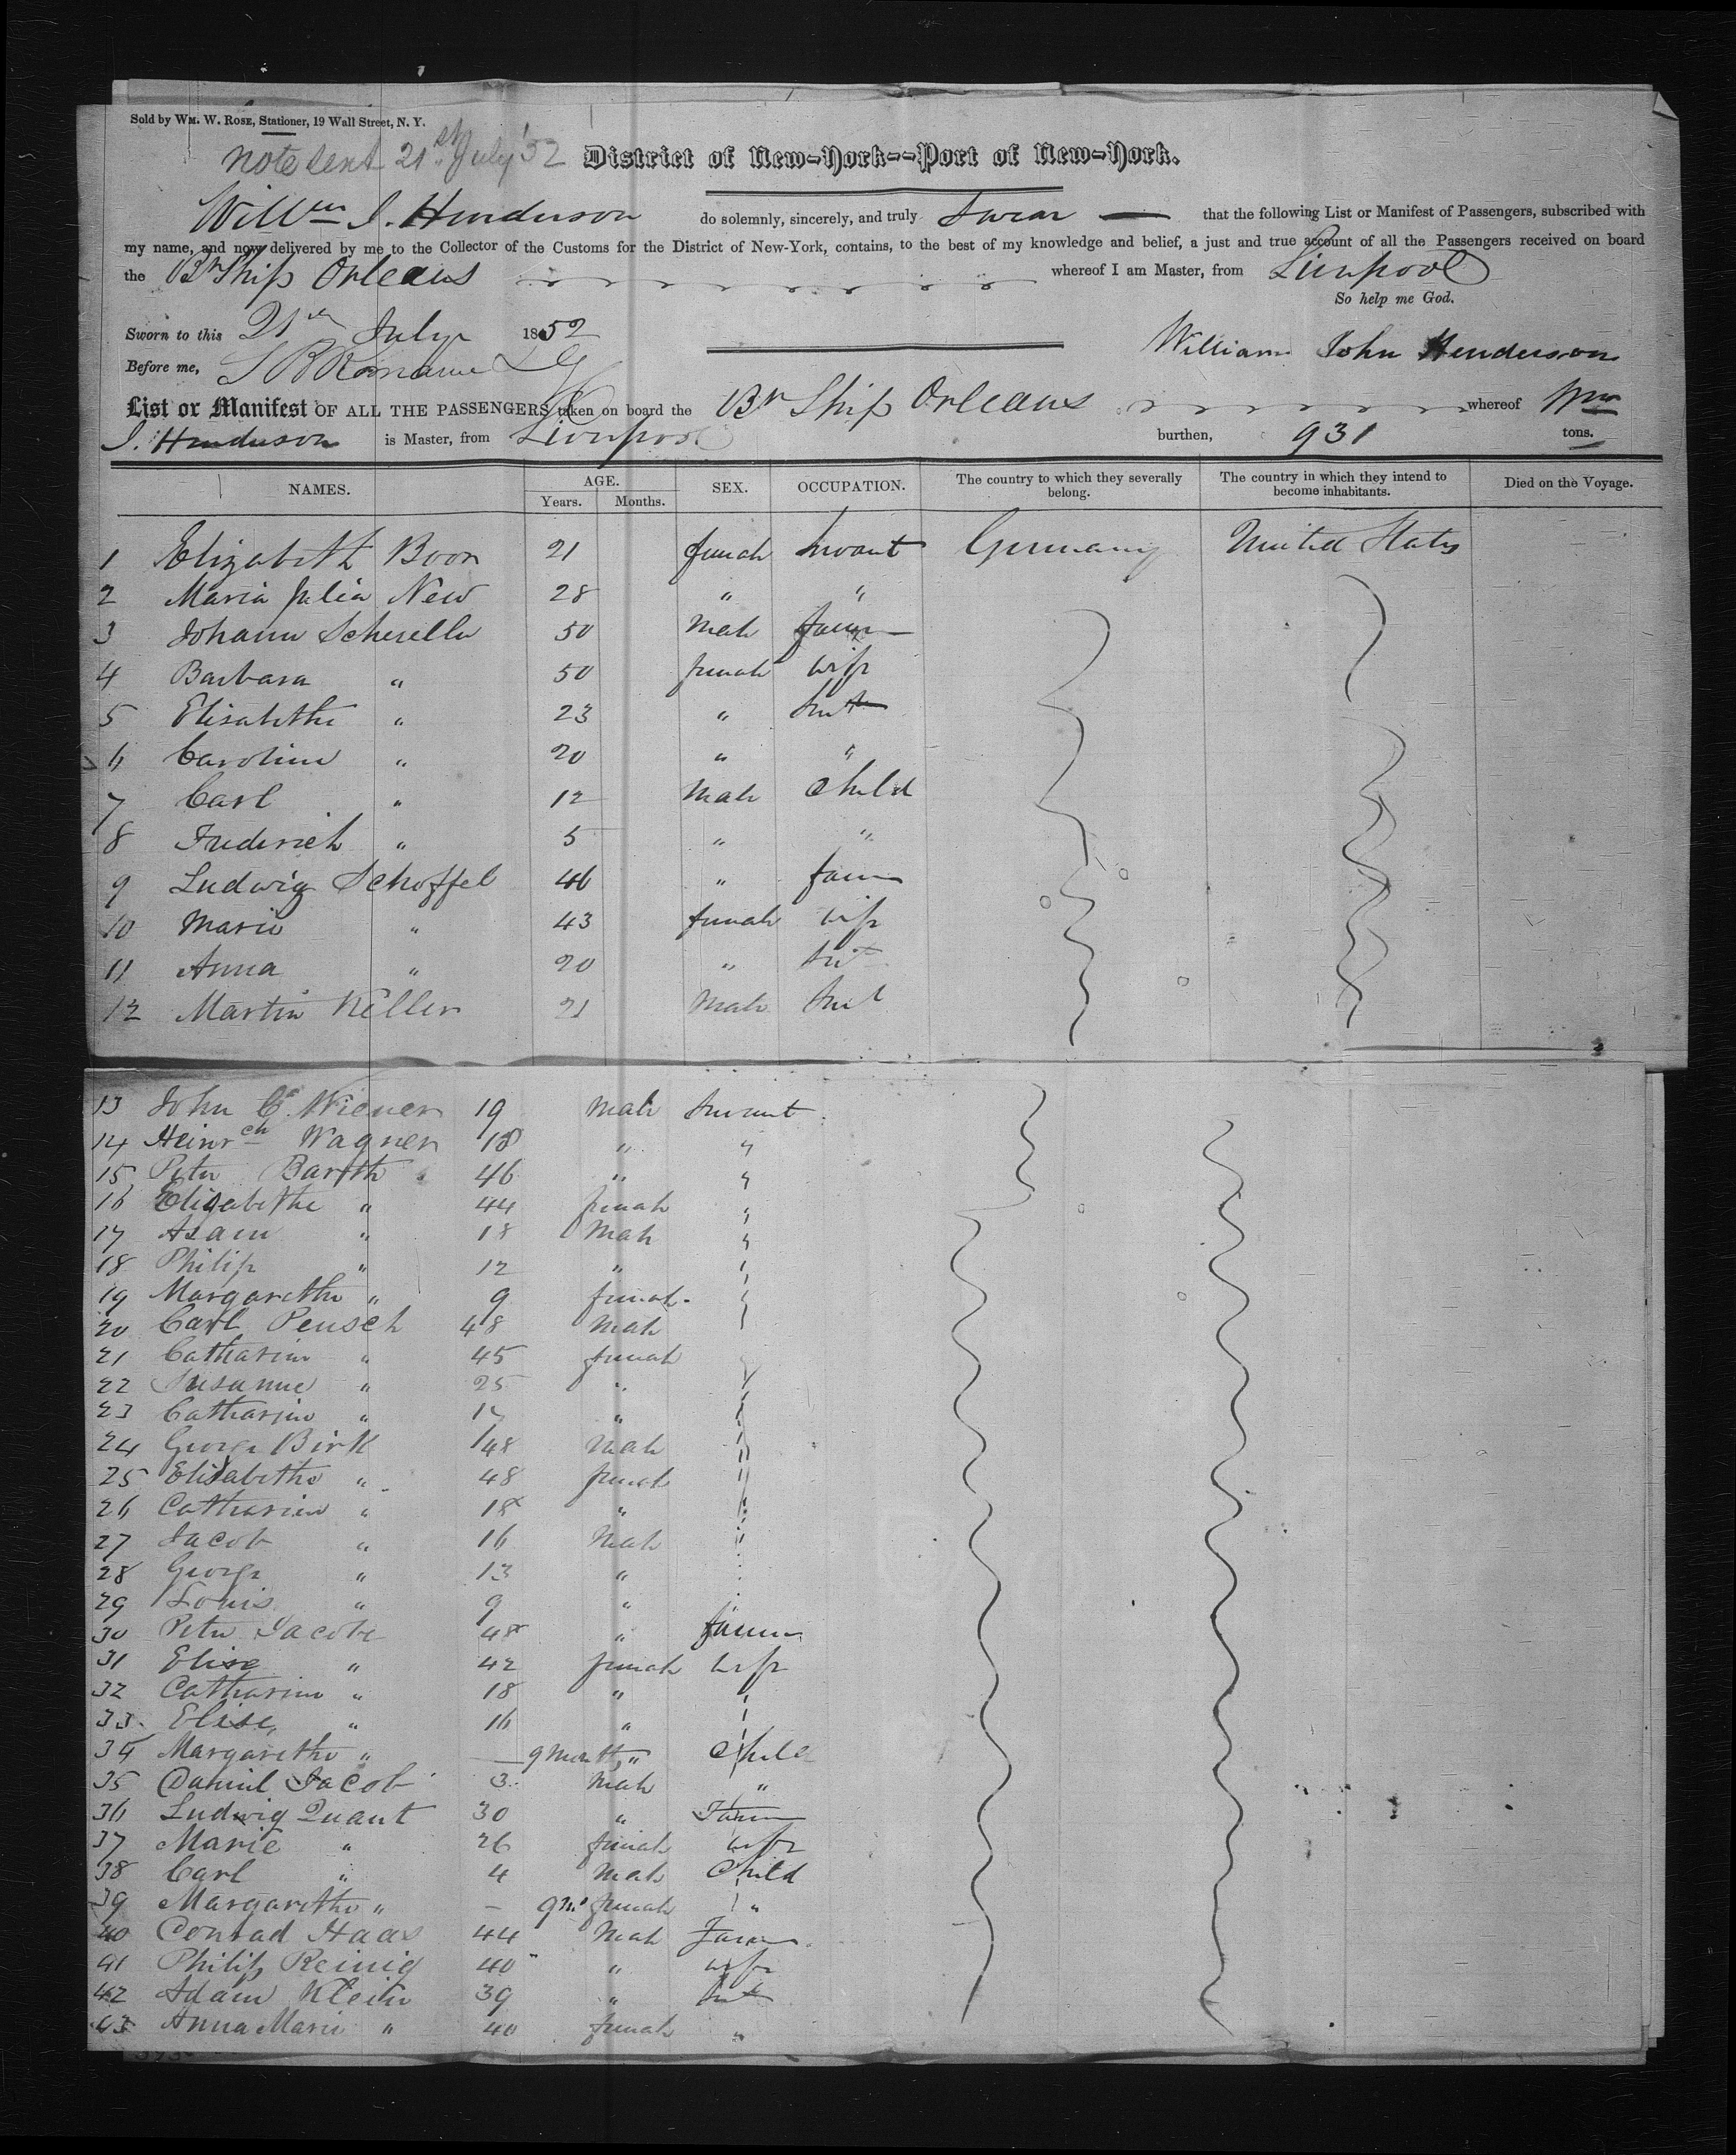 Sold by WM. W. ROSE, Stationer, 19 Wall Street, N. Y.
note sent 21st July '52 District of New-York--Port of New-York.
Willm J. Henderson do solemnly, sincerely, and truly Swear that the following List or Manifest of Passengers, subscribed with
my name, and now delivered by me to the Collector of the Customs for the District of New-York, contains, to the best of my knowledge and belief, a just and true account of all the Passengers received on board
the Br Ship Orleans whereof I am Master, from Liverpool
So help me God.
Sworn to this 21st July 1852
William John Henderson
Before me, S B Romaine
List or Manifest OF ALL THE PASSENGERS taken on board the Br Ship Orleans whereof Wm
J. Henderson is Master, from Liverpool burthen, 931 tons.
NAMES. AGE. SEX. OCCUPATION. The country to which they severally belong. The country in which they intend to become inhabitants. Died on the Voyage.
Years. Months.
1 Elizabeth Boon 21 female Servant Germany United States
2 Maria Julia New 28 " "
3 Johann 50 Male farmer
4 Barbara " 50 female wife
5 Elisabethe " 23 " Svt
6 Caroline " 20 " "
7 Carl " 12 Male Child
8 Frederich " 5 " "
9 Ludwig Schoffel 46 " farm
10 Marie " 43 female wife
11 Anna " 20 " Svt
12 Martin Keller 21 Male Svt
13 John C. Wiener 19 male Servant
14 Heinrch Wagner 18 " "
15 Peter Barth 46 " "
16 Elisabethe " 44 female "
17 Adam " 18 Male "
18 Philip " 12 " "
19 Margarethe " 9 female "
20 Carl Peusch 48 Male
21 Catharine " 45 female
22 Susanne " 25 "
23 Catharine " "
24 George Birk 48 male
25 Elisabethe " 48 female
26 Catharine " 18 "
27 Jacob " 16 Male
28 George " 13 "
29 Louis " 9 "
30 Peter Jacobe 48 " farmer
31 Elise " 42 female wife
32 Catharine " 18 " "
33 Elise " 16 "
34 Margarethe " 9 month " Child
35 Daniel Jacob 3 Male "
36 Ludwig Quant 30 " Farm
37 Marie " 26 female wife
38 Carl " 4 Male Child
39 Margarethe " 9 mo female "
40 Conrad Haas 44 Male Farm
41 Philip Reinig 40 " wife
42 Adam Klein 39 " Svt
43 Anna Marie " 40 female "